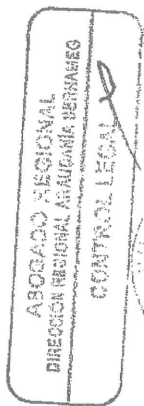 ABOGADO REGIONAL
DIRECCIÓN REGIONAL ARAUCANÍA SERNAMEG
CONTROL LEGAL